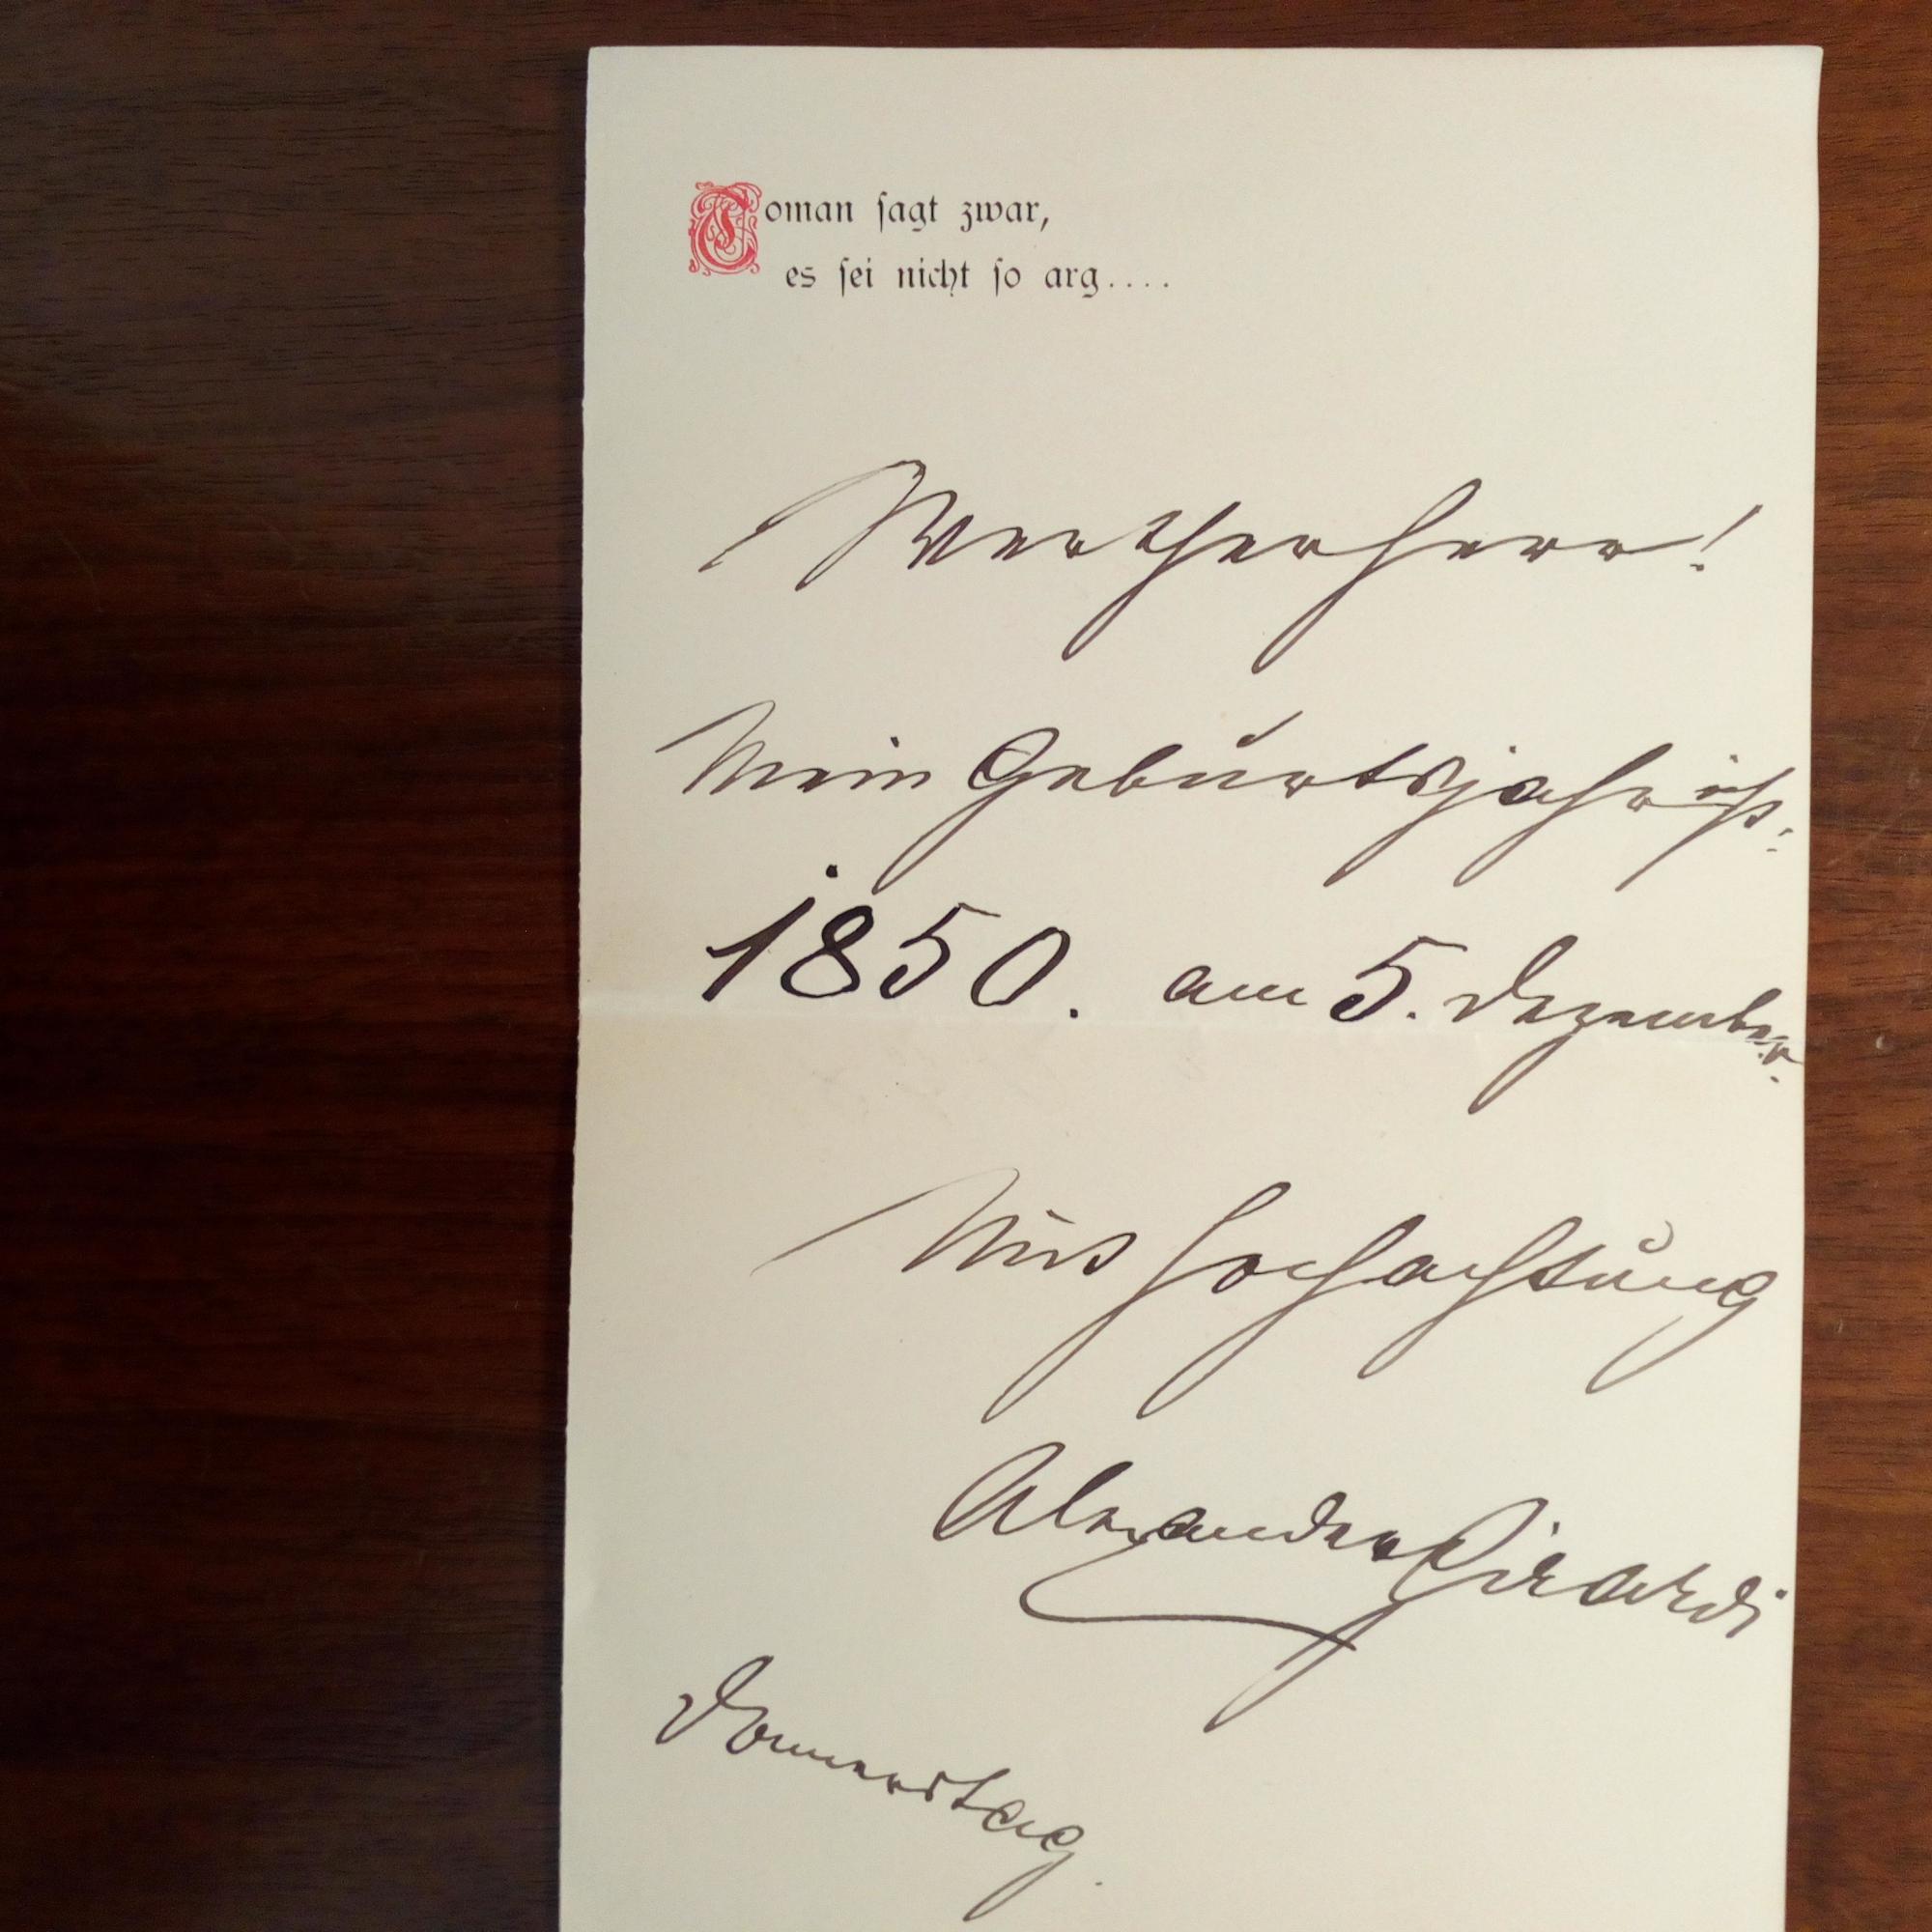 Toman sagt zwar,
es sei nicht so arg....
Werther Herr!
Mein Geburtsjahr ist:
1850. am 5. Dezember.
Mit Hochachtung
Alexander Girardi
Donnerstag.